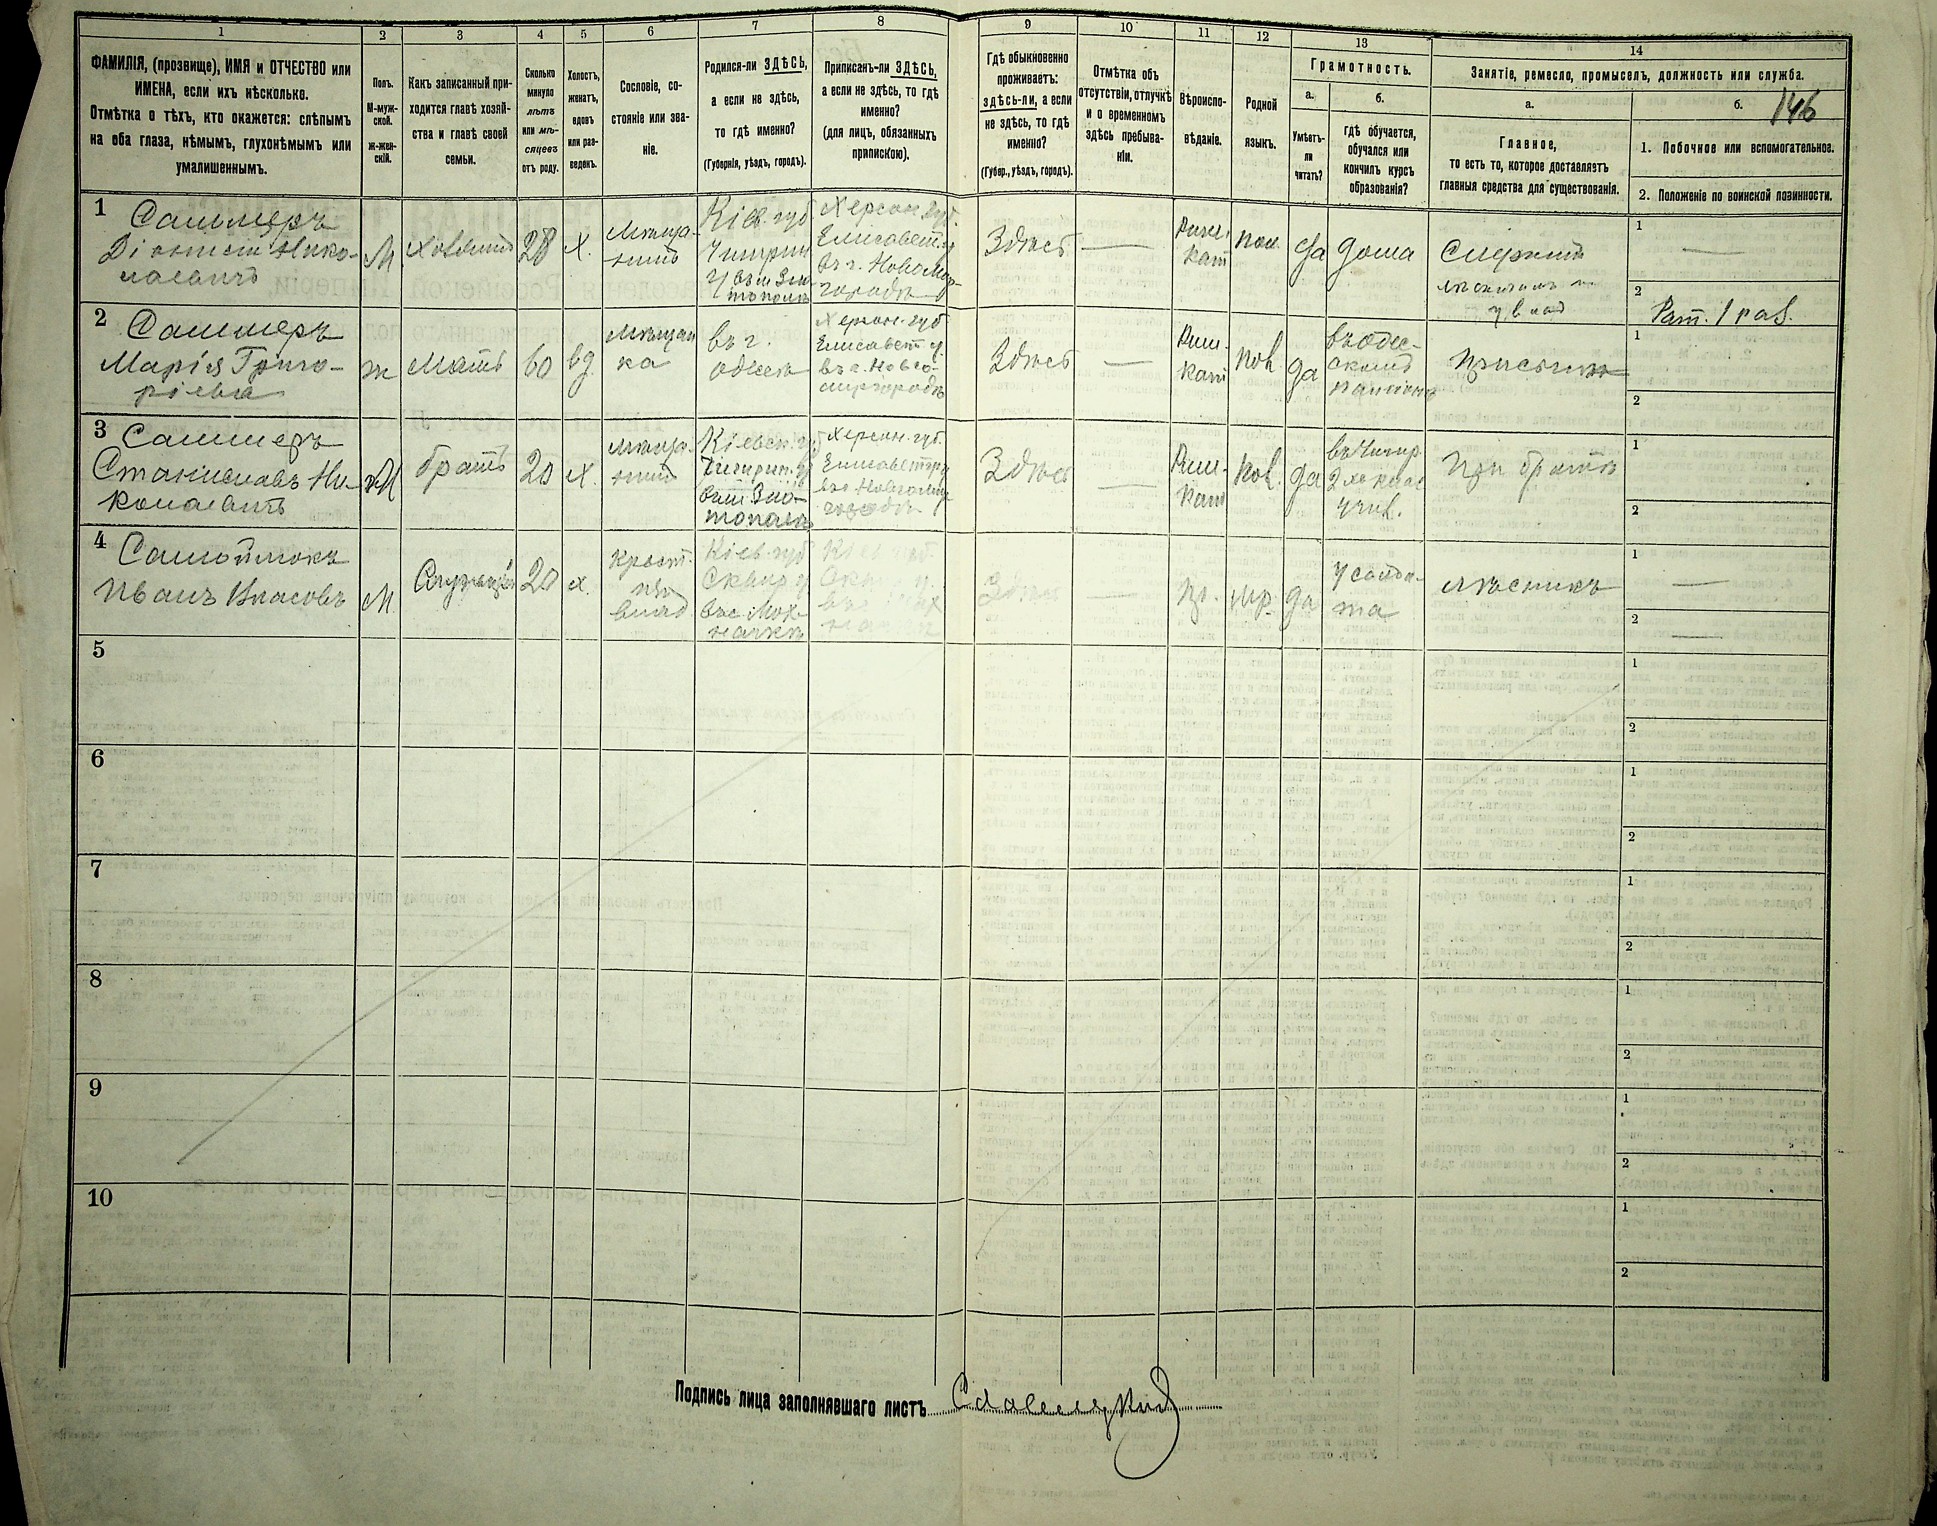 1
2
3
4
5
6
7
8
9
10
11
12
13
14
146
ФАМИЛІЯ, (прозвище), ИМЯ и ОТЧЕСТВО или
ИМЕНА, если ихъ нѣсколько.
Отмѣтка о тѣхъ, кто окажется: слѣпымъ
на оба глаза, нѣмымъ, глухонѣмымъ или
умалишеннымъ.
Полъ.
М-муж-
ской.
ж-жен-
скій.
Какъ записанный при-
ходится главѣ хозяй-
ства и главѣ своей
семьи.
Сколько
минуло
лѣтъ
или мѣ-
сяцевъ
отъ роду.
Холостъ,
женатъ,
вдовъ
или раз-
веденъ.
Сословіе, со-
стояніе или зва-
ніе.
Родился-ли ЗДѢСЬ,
а если не здѣсь,
то гдѣ именно?
(Губернія, уѣздъ, городъ).
Приписанъ-ли ЗДѢСЬ,
а если не здѣсь, то гдѣ
именно?
(для лицъ, обязанныхъ
припискою).
Гдѣ обыкновенно
проживаетъ:
здѣсь-ли, а если
не здѣсь, то гдѣ
именно?
(Губер., уѣздъ, городъ).
Отмѣтка объ
отсутствіи, отлучкѣ
и о временномъ
здѣсь пребыва-
ніи.
Вѣроиспо-
вѣданіе.
Родной
языкъ.
Грамотность.
а.
Умѣетъ-
ли
читать?
б.
гдѣ обучается,
обучался или
кончилъ курсъ
образованія?
Занятіе, ремесло, промыселъ, должность или служба.
а.
Главное,
то есть то, которое доставляетъ
главныя средства для существованія.
б.
1. Побочное или вспомогательное.
2. Положеніе по воинской повинности.
1
Діонисій Нико-
лаевичъ
М
28
х.
Мѣща-
нинъ
Кіев. губ
Чигирин
Херсон. губ.
Елисавет. у
въ г. Новомир-
городѣ
Здѣсь
Рим.
кат
пол.
да
дома
Служитъ
1
2
Рат. 1 раз.
2
Марія Григо-
рьевна
ж
мать
60
вд.
Мѣщан
ка
въ г.
Одессѣ
Херсон. губ
Елисавет у.
въ г. Ново-
миргородѣ
Здѣсь
Рим.
кат
пол
да
въ Одес-
скомъ
При сынѣ
1
2
3
Станиславъ Ни-
колаевичъ
М
братъ
20
х.
Мѣща-
нинъ
Кіевск. губ
Чигирин. у
въ м. Зла-
тополѣ
Херсон. губ.
Здѣсь
Рим.
кат
пол.
да
въ Чигир.
2хъ клас
учил.
При братѣ
1
2
4
Самойлюкъ
Иванъ Власовъ
М.
20
х.
Крест.
Кіев. губ
Сквир у
въ с. Мох-
начкѣ
Здѣсь
Пр.
да
у солда-
та
лѣсникъ
1
2
5
1
2
6
1
2
7
1
2
8
1
2
9
1
2
10
1
2
Подпись лица заполнявшаго листъ